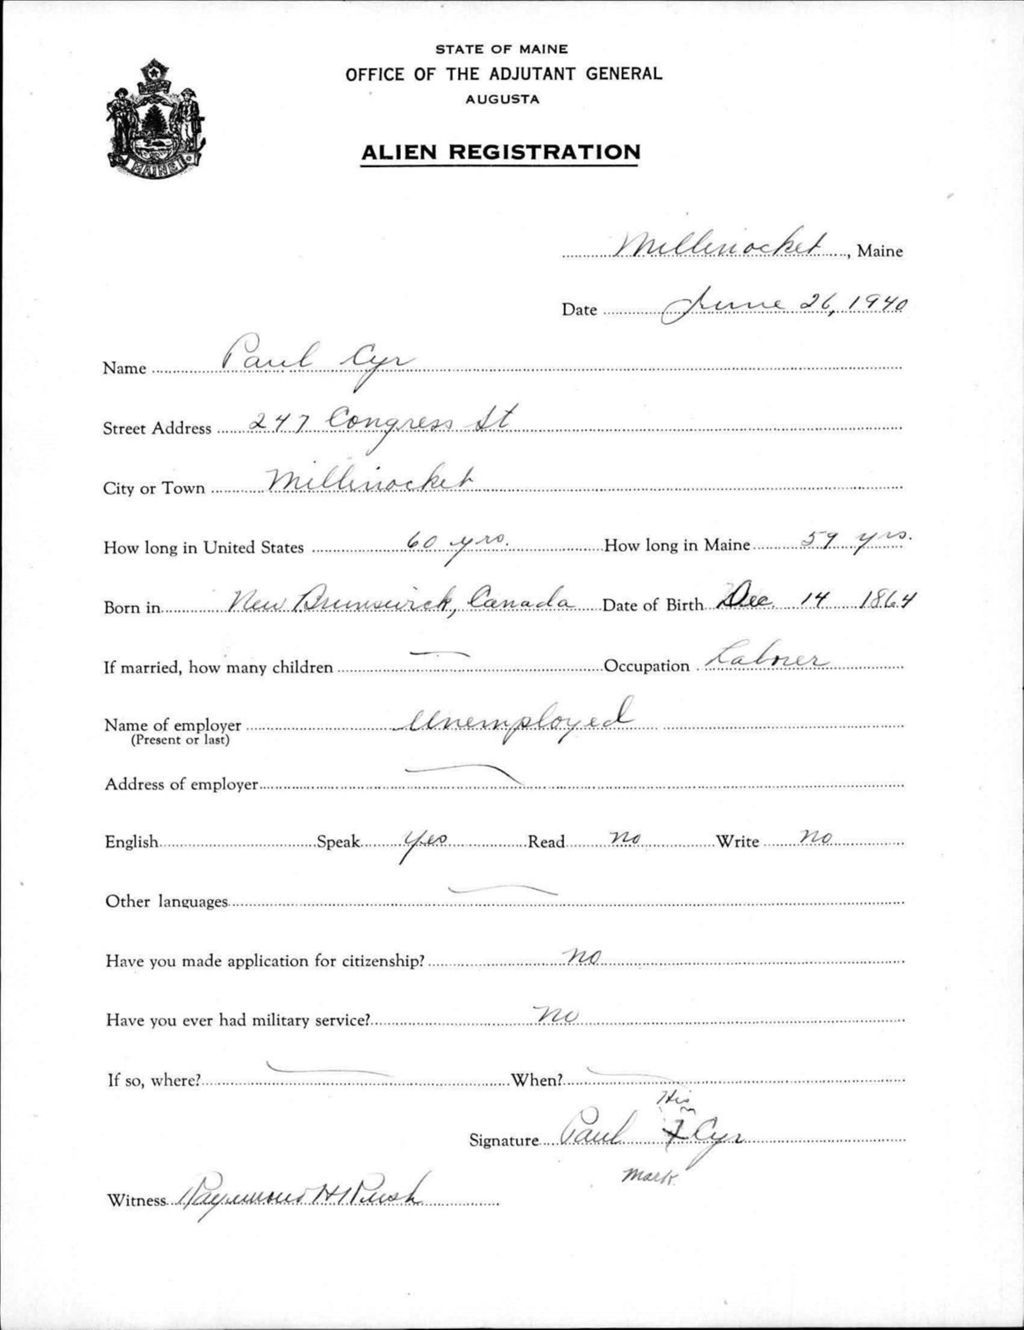 STATE OF MAINE
OFFICE OF THE ADJUTANT GENERAL
AUGUSTA
ALIEN REGISTRATION
MAINE
Millinocket, Maine
Date June 26, 1940
Name Paul Cyr
Street Address 247 Congress St
City or Town Millinocket
How long in United States 60 yrs. How long in Maine 59 yrs.
Born in New Brunswick, Canada Date of Birth Dec. 14 1864
If married, how many children — Occupation Laborer
Name of employer Unemployed
(Present or last)
Address of employer —
English Speak Yes Read No Write No
Other languages —
Have you made application for citizenship? No
Have you ever had military service? No
If so, where? — When? —
His
Signature Paul X Cyr
mark
Witness Raymond H Rush